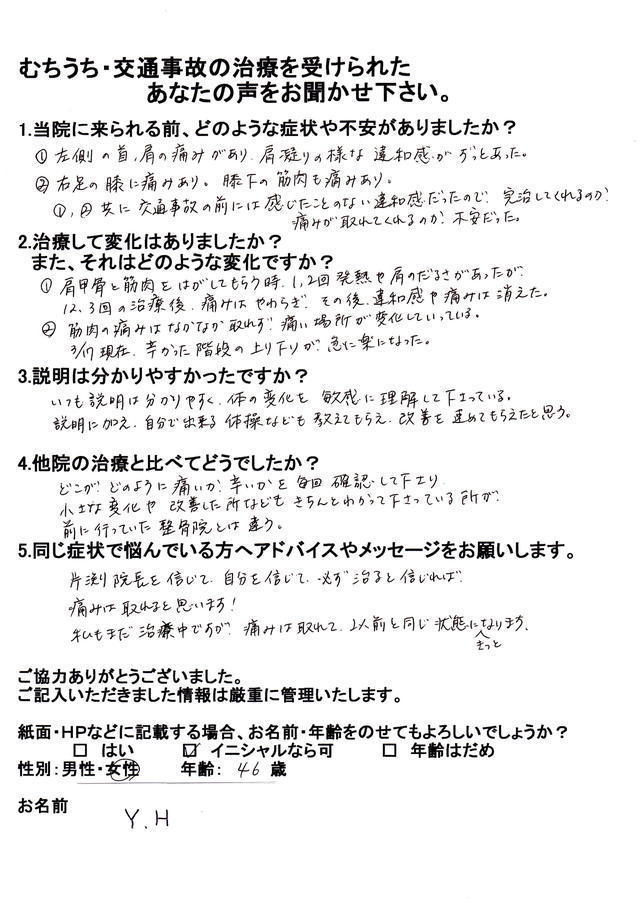 むちうち・交通事故の治療を受けられた
あなたの声をお聞かせ下さい。
1.当院に来られる前、どのような症状や不安がありましたか？
① 左側の首、肩の痛みがあり、肩凝りの様な違和感がずっとあった。
② 右足の膝に痛みあり。膝下の筋肉も痛みあり。
①,②共に交通事故の前には感じたことのない違和感だったので、完治してくれるのか?
痛みが取れてくれるのか?不安だった。
2.治療して変化はありましたか？
また、それはどのような変化ですか？
① 肩甲骨と筋肉をはがしてもらう時、1,2回発熱や肩のだるさがあったが、
12,3回の治療後、痛みはやわらぎ、その後、違和感や痛みは消えた。
② 筋肉の痛みはなかなか取れず、痛い場所が変化していっている。
3/17現在、辛かった階段の上り下りが、急に楽になった。
3.説明は分かりやすかったですか？
いつも説明は分かりやすく、体の変化を敏感に理解して下さっている。
説明に加え、自分で出来る体操なども教えてもらえ、改善を速めてもらえたと思う。
4.他院の治療と比べてどうでしたか？
どこが、どのように痛いか、辛いかを毎回確認して下さり、
小さな変化や改善した所などもきちんとわかって下さっている所が、
前に行っていた整骨院とは違う。
5.同じ症状で悩んでいる方へアドバイスやメッセージをお願いします。
片渕院長を信じて、自分を信じて、必ず治ると信じれば、
痛みは取れると思います!
私もまだ治療中ですが、痛みは取れて、以前と同じ状態になります。
きっと
ご協力ありがとうございました。
ご記入いただきました情報は厳重に管理いたします。
紙面・HPなどに記載する場合、お名前・年齢をのせてもよろしいでしょうか？
□ はい ☑ イニシャルなら可 □ 年齢はだめ
性別：男性・女性 年齢： 46 歳
お名前
Y.H